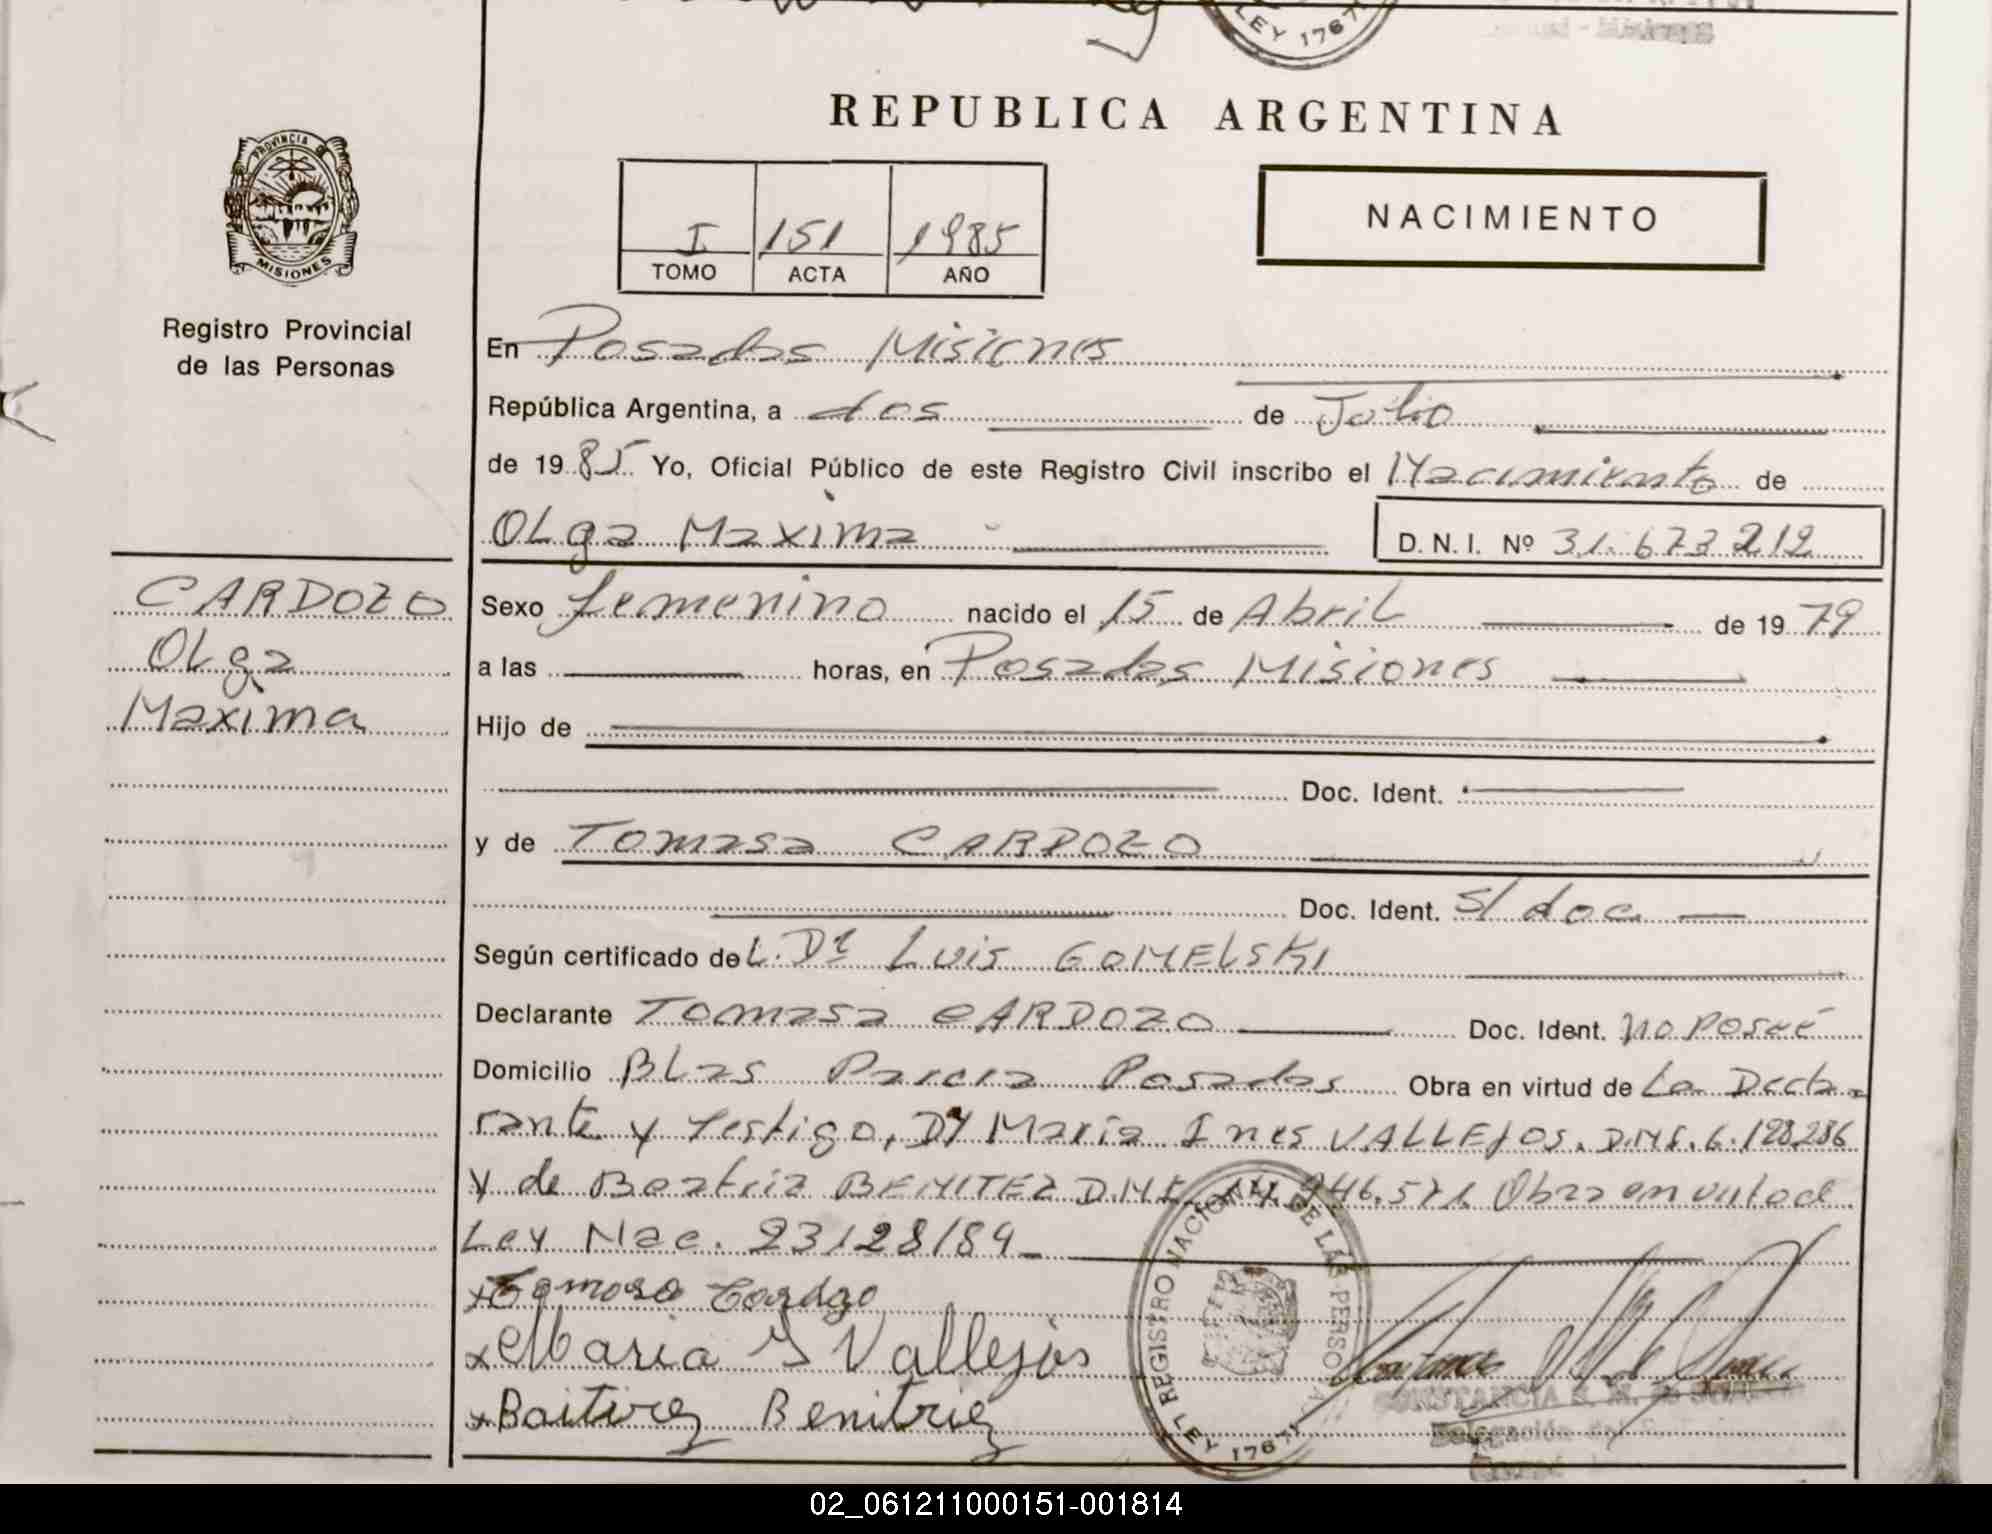 LEY 1767
REPUBLICA ARGENTINA
PROVINCIA DE
MISIONES
I 151 1985
TOMO ACTA AÑO
NACIMIENTO
Registro Provincial
de las Personas
En Posadas Misiones
República Argentina, a dos de Julio
de 1985 Yo, Oficial Público de este Registro Civil inscribo el Nacimiento de
OLga Maxima D.N.I. Nº 31.673.212
CARDOZO
OLga
Maxima
Sexo femenino nacido el 15 de Abril de 1979
a las horas, en Posadas Misiones
Hijo de
Doc. Ident.
y de Tomasa CARDOZO
Doc. Ident. s/doc
Según certificado de L. Dr Luis GOMELSKI
Declarante Tomasa CARDOZO Doc. Ident. no poseé
Domicilio BLas Parera Posadas Obra en virtud de La Decla-
rante y Testigo, Dª Maria Ines VALLEJOS. D.N.I. 6.128286
y de Beatriz BENITEZ D.N.I. 14.946.571 Obra en virtud
Ley Nac. 23128/84
x Tomasa Cordozo
x Maria I Vallejos
x Baitirez Benitriez
REGISTRO NACIONAL DE LAS PERSONA
LEY 1767
CONSTANCIA S. M.
Delegación
02_061211000151-001814